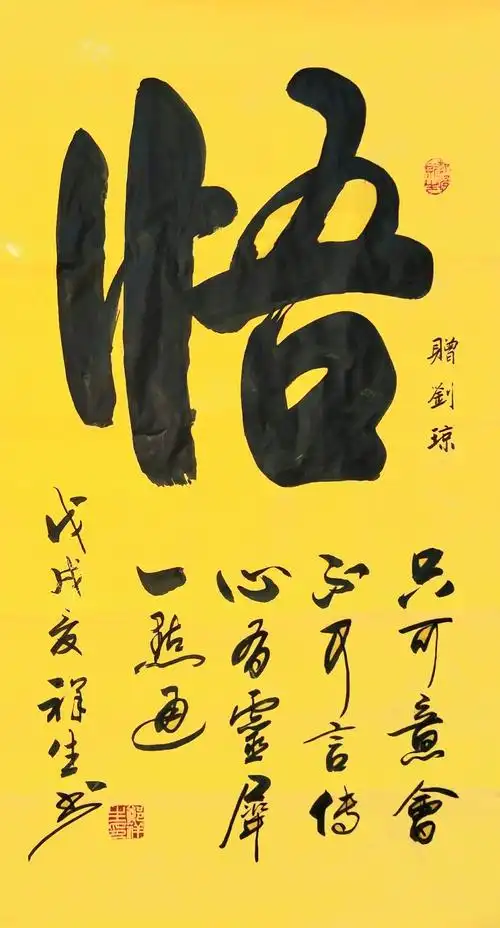 悟
贈劉琼
只可意會
不可言傳
心有靈犀
一點通
戊戌夏祥生书